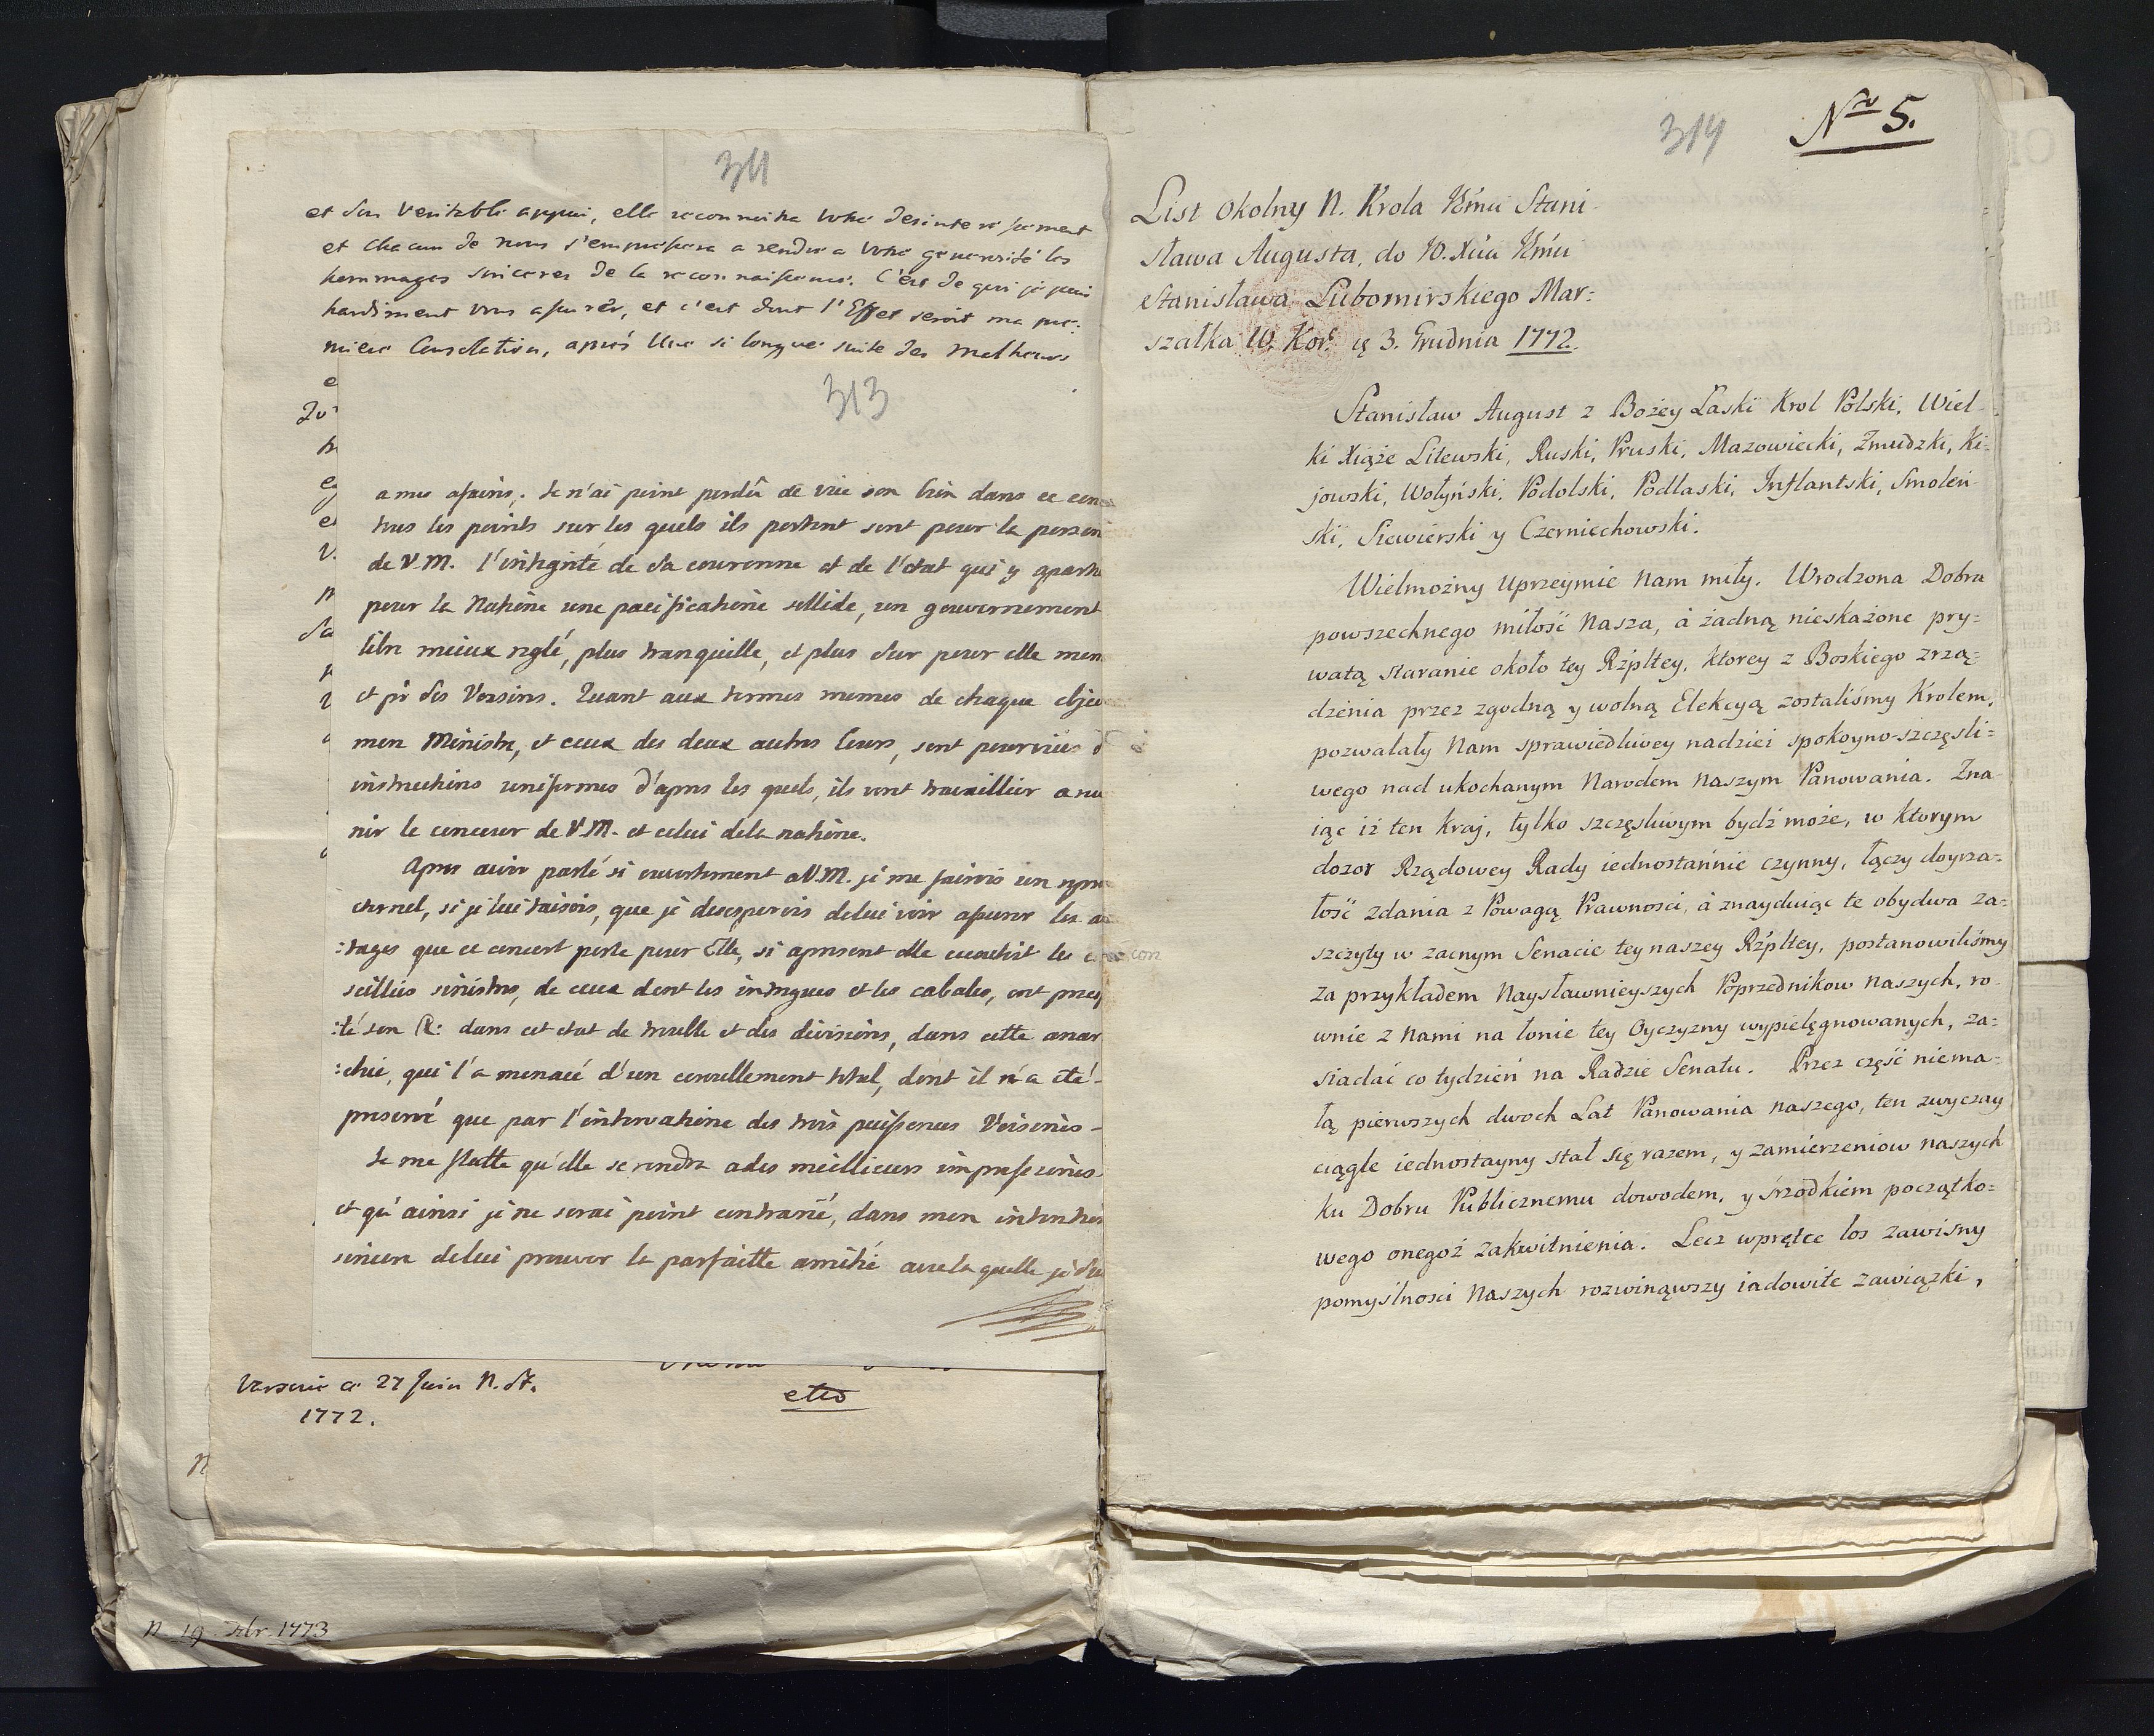 311
et son veritable appui, elle reconnoitra votre desinteressement
et chacun de nous s'empressera a rendre a votre generosité les
hommages sinceres de la reconnaissance. C'est de quoi je puis
hardiment vous assurer, et c'est dont l'Effet seroit ma pre:
miere Consolation, aprés Une si longue suite des malheurs
313
a mes assuins. Je n'ai point perdû de vüe son bien dans ce con
tous les points sur les quels ils portent sont pour la person
de V.M. l'intégrité de sa couronne et de l'etat qui y aparti
pour la Nations une pacifications sollide, un gouvernement
libre mieux reglé, plus tranquille, et plus sur pour elle mem
et pr ses Voisins. Quant aux termes memes de chaque objet
mon Ministre, et ceux des deux autres Cours, sont pourvües d
instructions uniformes d'apres les quels, ils vont travaillier a reu
nir le concour de V.M. et celui dela nations.
Apres avoir parlé si ouvertement a V.M. je me fairois un repro
eternel, si je lui taisois, que je desesperois delui voir assurer les a
:tages que ce concert porte pour Elle, si apresent elle ecoutoit les con
seillies sinistres, de ceux dont les intrigues et les cabales, ont preci
:té son R: dans cet etat de trouble et des divisions, dans cette anar
:chie, qui l'a menacé d'un croullement total, dont il n'a eté
preservé que par l'intervations des trois puissences Voisines
Je me flatte qu'elle se rendra a des meillieurs impressions
et qu'ainsi je ne serai point contrarié, dans mon intention
sincere delui prouver la parfaitte amitié avec la quelle je sui
Varsovie ce 27 Juin N. St.
1772.
etco
N 19 Xbr. 1773
314
Nro 5.
List okolny N. Krola JEmci Stani-
sława Augusta, do W. Xcia JEmci
Stanisława Lubomirskiego Mar:
szałka W. Kor. ię 3. Grudnia 1772.
Stanisław August z Bożey Łaski Krol Polski, Wiel-
ki Xiąże Litewski, Ruski, Pruski, Mazowiecki, Zmudzki, Ki-
jowski, Wołyński, Podolski, Podlaski, Inflantski, Smoleń-
ski, Siewierski y Czerniechowski.
Wielmożny Uprzeymie Nam miły. Wrodzona Dobra
powszechnego miłość Nasza, à żadną nieskażone pry:
watą staranie około tey Rzpltey, ktorey z Boskiego zrzą:
dzenia przez zgodną y wolną Elekcyą zostaliśmy Krolem,
pozwalały Nam sprawiedliwey nadziei spokoyno-szczęśli:
wego nad ukochanym Narodem Naszym Panowania. Zna-
iąc iż ten Kraj, tylko szczęsliwym bydź może, w ktorym
dozor Rządowey Rady iednostańnie czynny, łączy doyrza:
łość zdania z Powagą Prawnosci, à znayduiąc te obydwa za:
szczyty w zacnym Senacie tey naszey Rzpltey, postanowiliśmy
za przykładem Naysławnieyszych Poprzednikow Naszych, ro-
wnie z Nami na łonie tey Oyczyzny wypielęgnowanych, za:
siadać co tydzień na Radzie Senatu. Przez część niema:
łą pierwszych dwoch Lat Panowania naszego, ten zwyczay
ciągle iednostayny stał się razem, y zamierzeniow naszych
ku Dobru Publicznemu dowodem, y śrzodkiem początko:
wego onegoż zakwitnienia. Lecz wprętce los zawisny
pomyślnosci Naszych rozwinąwszy iadowite zawiązki,